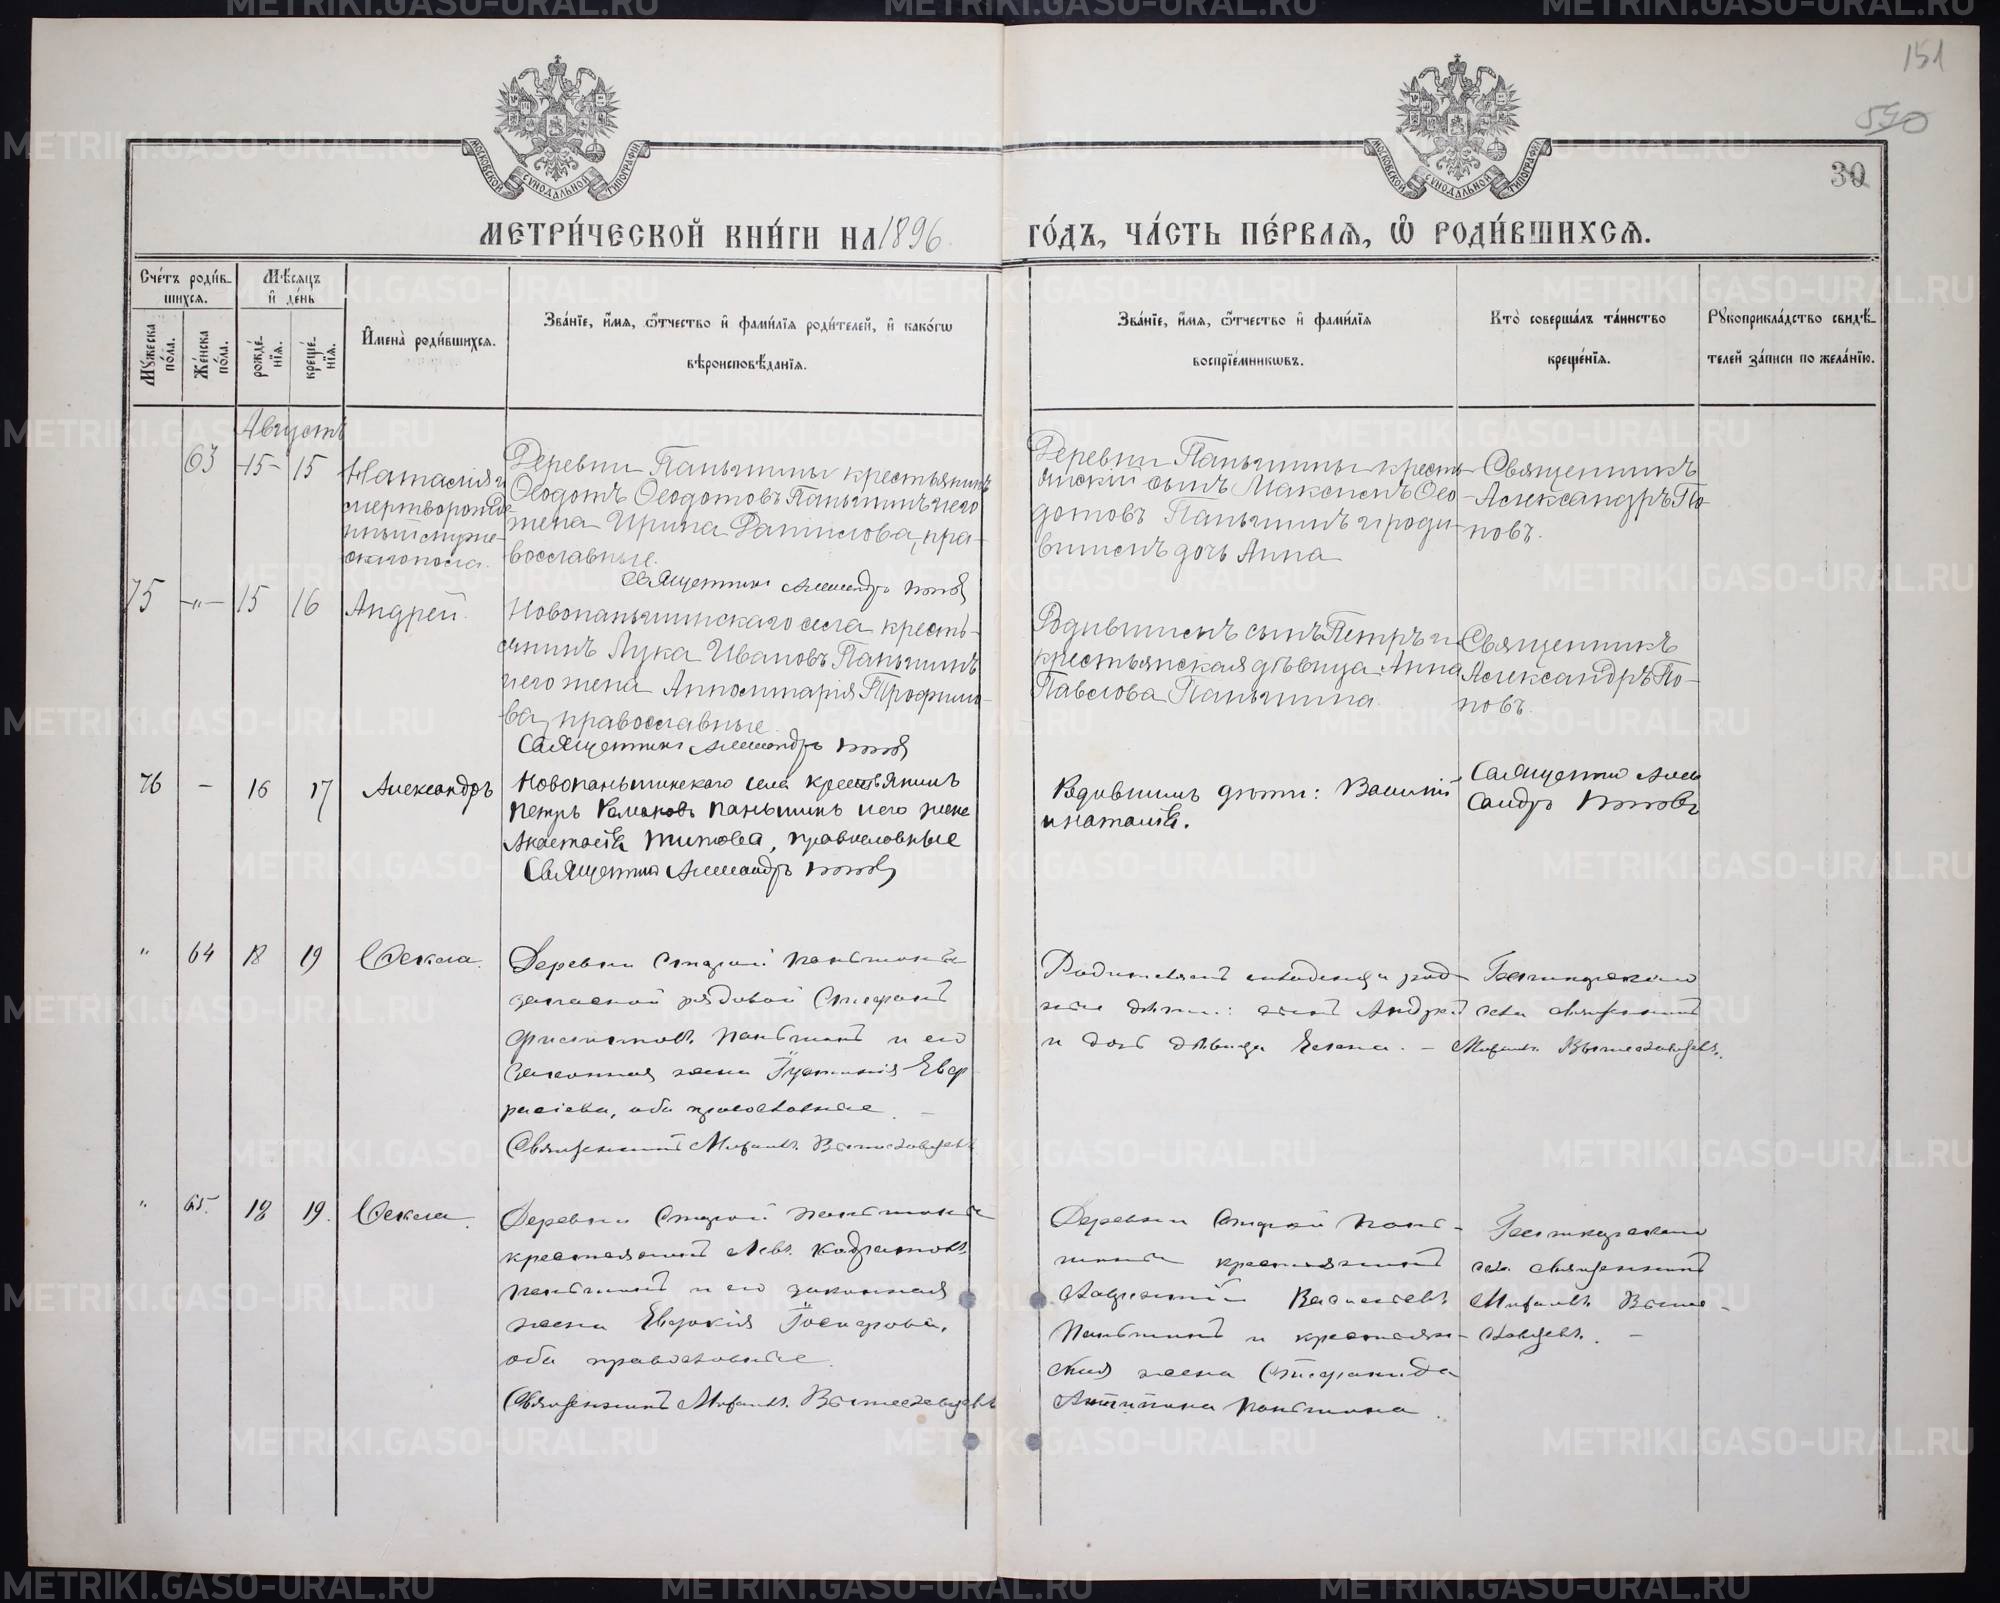 151
550
30
МОСКОВСКОЙ СУНОДАЛЬНОЙ ТИПОГРАФІИ
МОСКОВСКОЙ СУНОДАЛЬНОЙ ТИПОГРАФІИ
МЕТРИ́ЧЕСКОЙ КНИ́ГИ НА 1896 ГО́ДЪ, ЧА́СТЬ ПЕ́РВАЯ, Ѽ РОДИ́ВШИХСЯ.
Сче́тъ роди́в-
шихся.
Мѣ́сяцъ
и҆ де́нь
Мꙋ́жеска по́ла.
Же́нска по́ла.
рожде́-нїя.
креще́-нїя.
И҆мена̀ роди́вшихся.
Зва́нїе, и҆́мя, ѻ҆́тчество и҆ фами́лїя роди́телей, и҆ како́гѡ
вѣроисповѣ́данїя.
Зва́нїе, и҆́мя, ѻ҆́тчество и҆ фами́лїя
воспрїе́мникѡвъ.
Кто̀ соверша́лъ та́инство
креще́нїя.
Рꙋкоприкла́дство свидѣ́-
телей за́писи по жела́нїю.
Августъ
63 15 15
Наталія и
мертворожде
нный муже-
скаго пола.
Деревни Паньшины крестьянинъ
Ѳеодотъ Ѳеодотовъ Паньшинъ и его
жена Ирина Данилова, пра-
вославные.
Священникъ Александръ Поповъ
Деревни Паньшины кресть-
янскій сынъ Максимъ Ѳео-
дотовъ Паньшинъ и роди-
вшихъ дочь Анна
Священникъ
Александръ По-
повъ.
75 -"- 15 16 Андрей.
Новопаньшинскаго села кресть-
янинъ Лука Ивановъ Паньшинъ
и его жена Апполинарія Трофимо-
ва, православные.
Священникъ Александръ Поповъ
Родившихъ сынъ Петръ и
крестьянская дѣвица Анна
Павлова Паньшина.
Священникъ
Александръ По-
повъ.
76 - 16 17 Александръ
Новопаньшинскаго села крестьянинъ
Петръ Романовъ Паньшинъ и его жена
Анастасія Титова, православные
Священникъ Александръ Поповъ
Родившихъ дѣти: Василій
и Наталія.
Священникъ Алек
сандръ Поповъ
" 64 18 19 Ѳекла.
Деревни Старой Паньшиной
запасной рядовой Стефанъ
Паньшинъ и его
законная жена Іустинія Евф
расіева, оба православные. -
Священникъ Михаилъ
дѣти: сынъ Андрей
и дочь дѣвица Елена. -
села священникъ
Михаилъ
" 65. 18 19. Ѳекла.
Деревни Старой Паньшиной
крестьянинъ Левъ Кодратовъ
Паньшинъ и его законная
жена Евдокія
оба православные.
Священникъ Михаилъ
Деревни Старой Пань-
шиной крестьянинъ
Лаврентій Васильевъ
Паньшинъ и крестьян-
ская жена Стефанида
Антипина Паньшина.
села священникъ
Михаилъ
METRIKI.GASO-URAL.RU